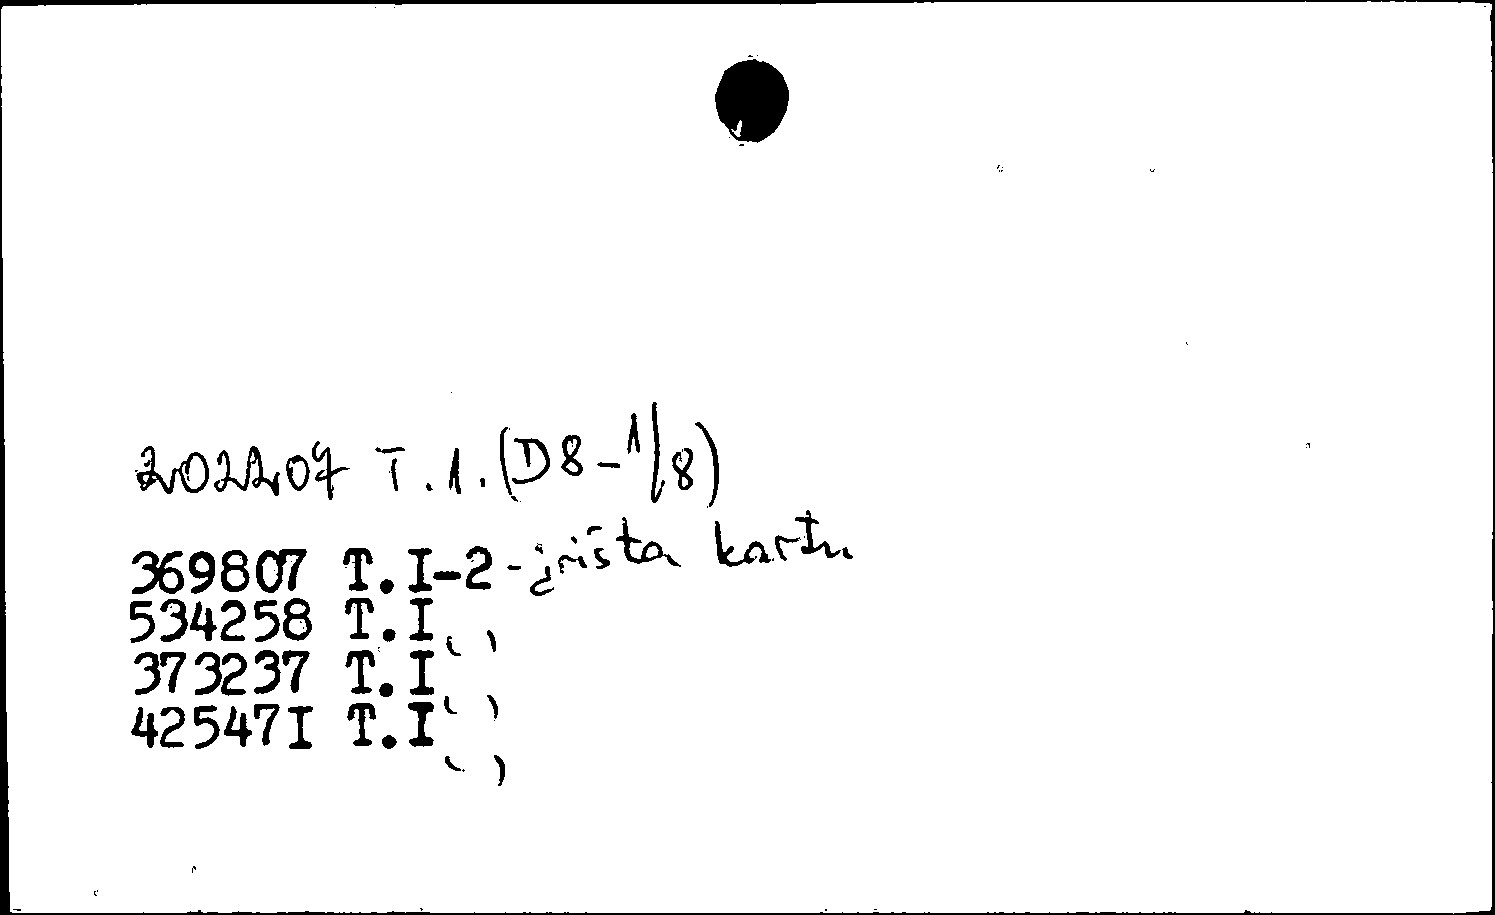 202207 T.1.(D8-1/8)
369807 T.I-2 - įrišta kartu
534258 T.I " "
373237 T.I " "
42547I T.I " "